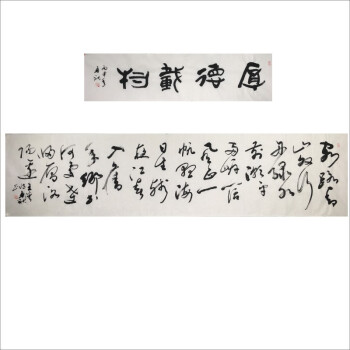 厚德載物
客路青
山外行
舟綠水
前潮平
兩岸闊
風正一
帆懸海
日生殘
夜江春
入舊
年鄉書
何處達
歸雁洛
陽邊